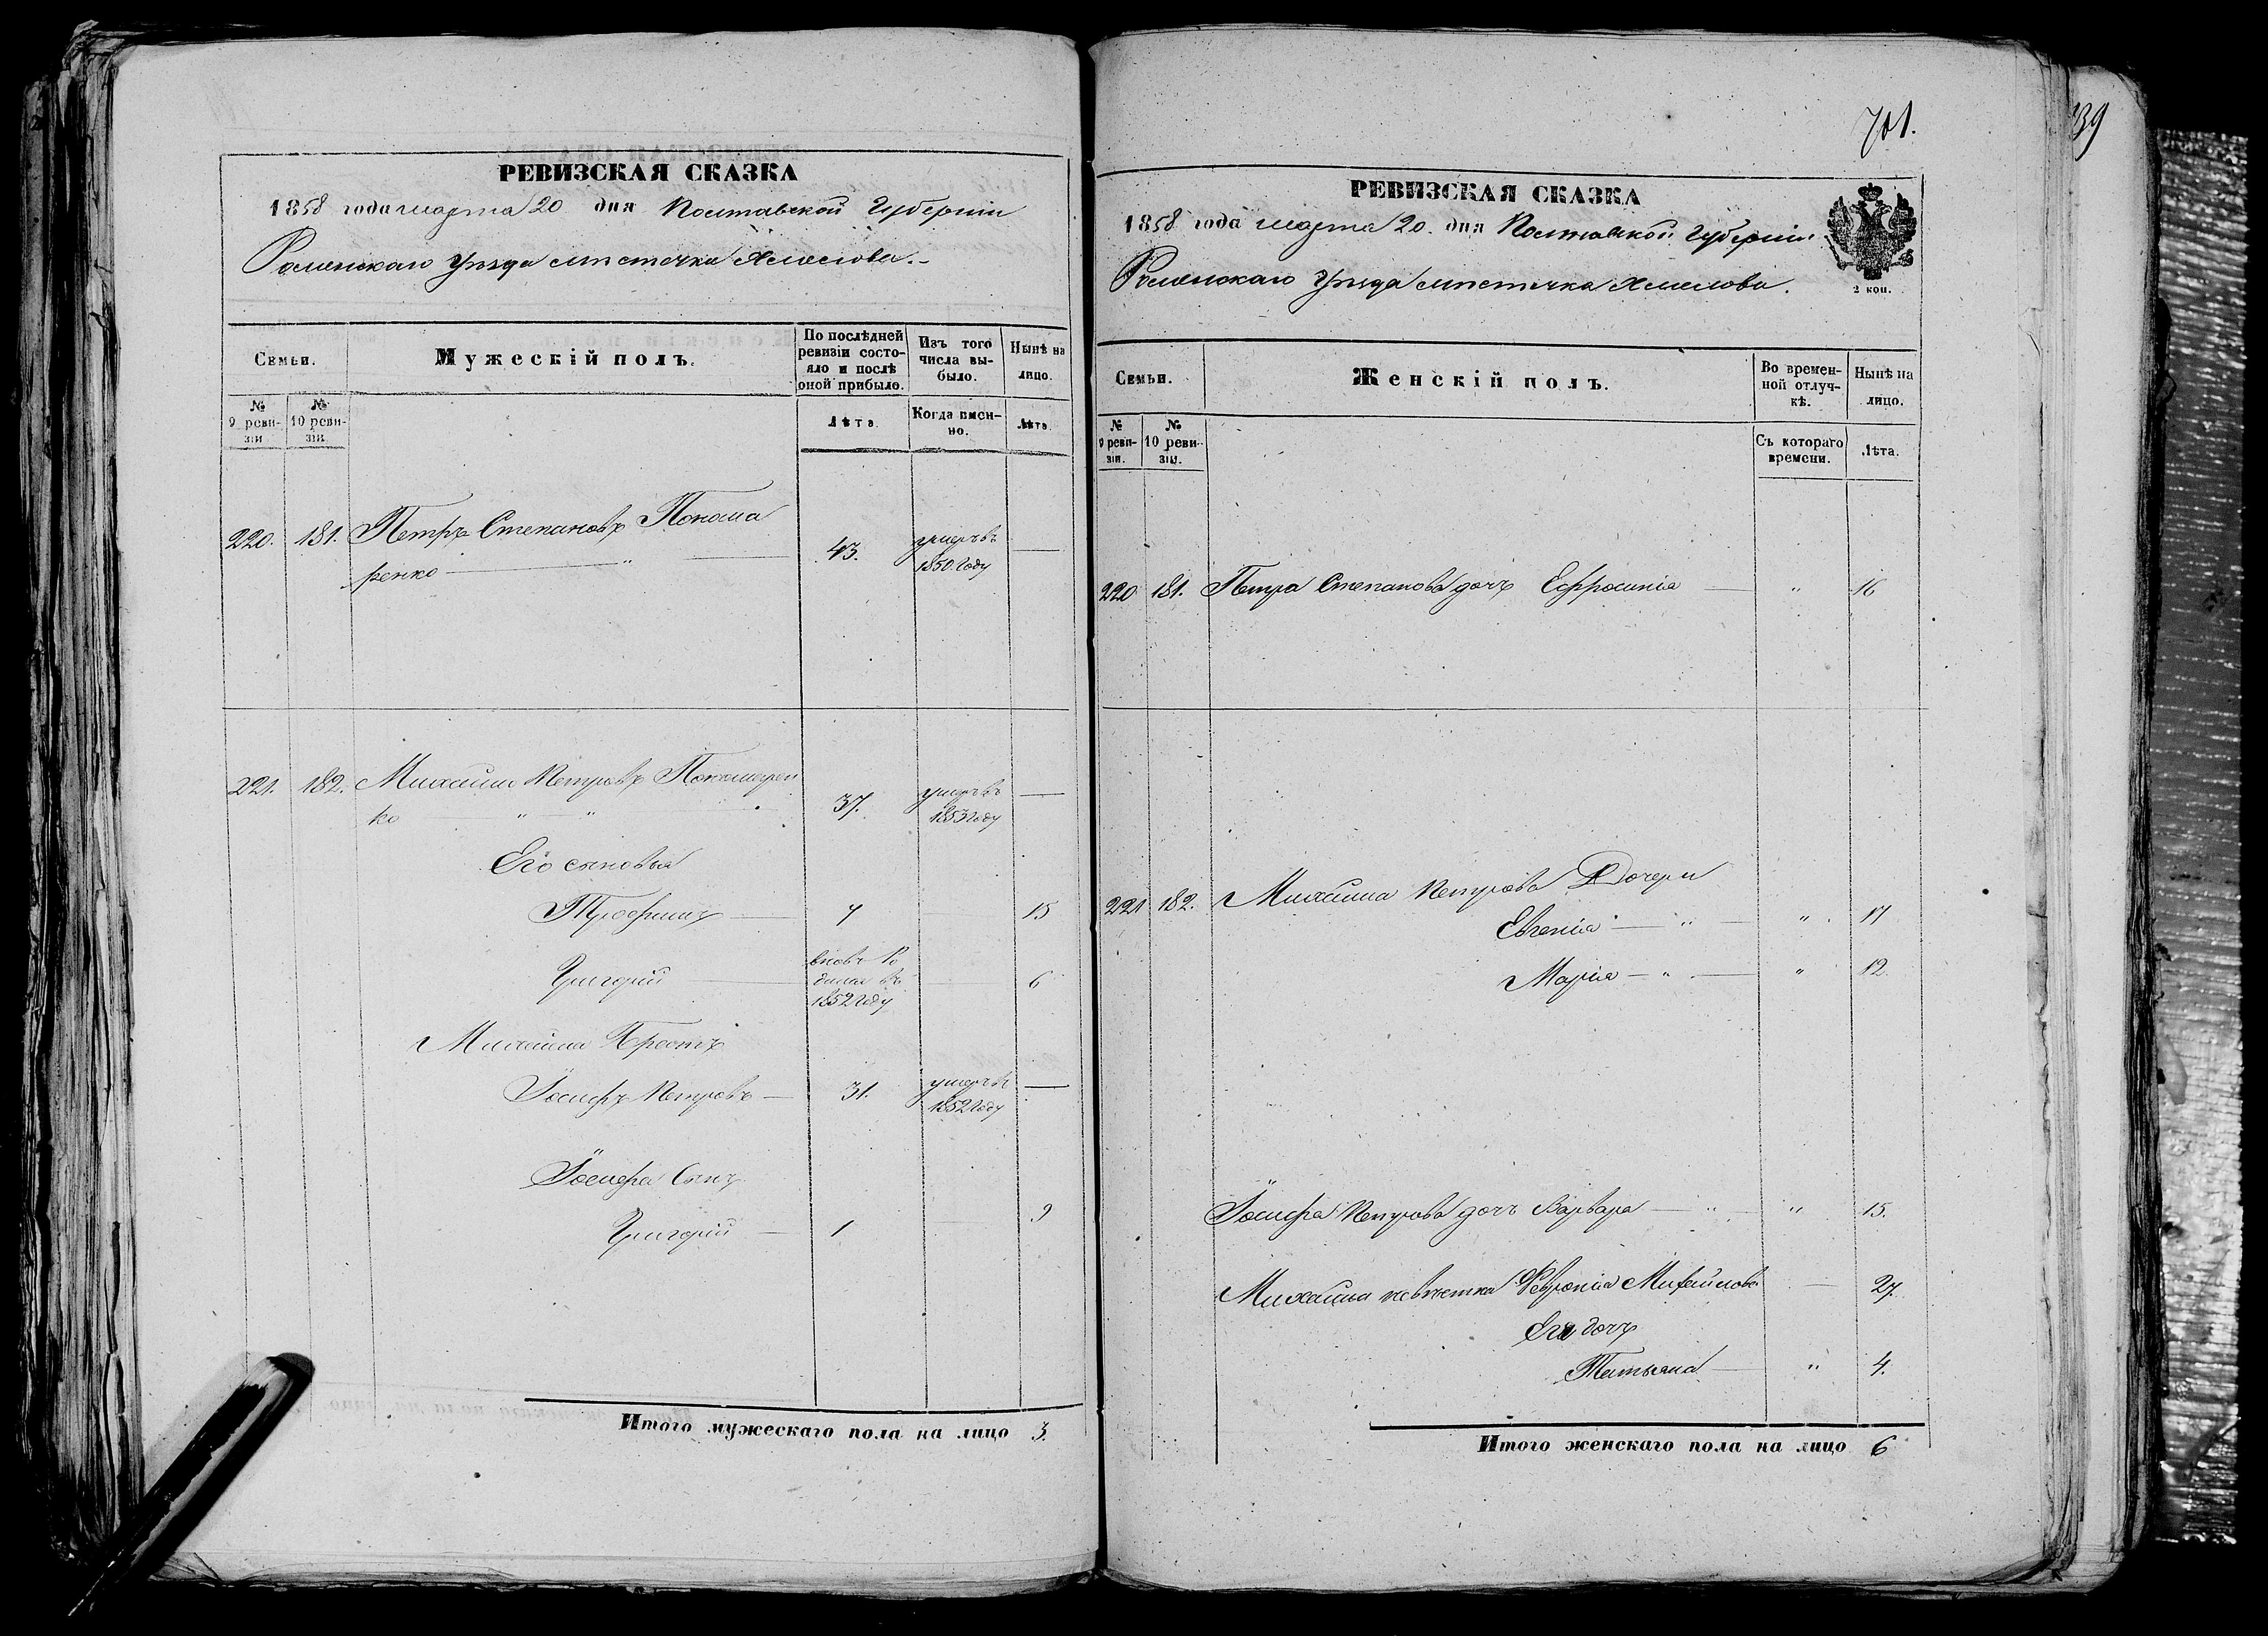 РЕВИЗСКАЯ СКАЗКА
1858 года марта 20 дня Полтавской Губерніи
Роменскаго Уѣзда мѣстечка Хмелова.
Семьи.
Мужескій полъ.
По послѣдней ревизіи состояло и послѣ оной прибыло.
Изъ того числа выбыло.
Нынѣ на лицо.
№ 9 ревизіи
№ 10 ревизіи.
Лѣта.
Когда именно.
Лѣта.
220. 181. Петръ Степановъ Понома
ренко — " — 43. умеръ въ 1850 году —
221. 182. Михаилъ Петровъ Пономарен
ко — " — " 37. умеръ въ 1853 году —
Его сыновья
Трофимъ — 7 — 15
Григорій — вновь ро дился въ 1852 году — 6
Михаила Братъ
Іосифъ Петровъ — 31. умеръ въ 1852 году —
Іосифа Сынъ
Григорій — 1 — 9
Итого мужескаго пола на лицо 3.
701.
39
РЕВИЗСКАЯ СКАЗКА
1858 года марта 20. дня Полтавской Губерніи
Роменскаго Уѣзда мѣстечка Хмелова.
2 коп.
Семьи.
Женскій полъ.
Во временной отлучкѣ.
Нынѣ на лицо.
№ 9 ревизіи.
№ 10 ревизіи.
Съ котораго времени.
Лѣта.
220 181. Петра Степанова дочь Ефросинія — " 16
221 182. Михаила Петрова Дочери
Евгенія — " — " 17
Марія — " — " 12
Іосифа Петрова дочь Варвара — " — " 15.
Михаила невѣстка Февронія Михайлова — 27.
Ея дочь
Татьяна — " 4.
Итого женскаго пола на лицо 6